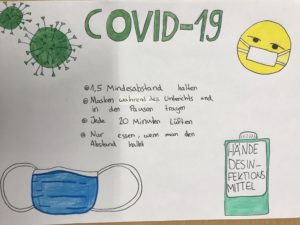 COVID-19
1,5 Mindesabstand halten
Masken während des Unterrichts und
in den Pausen tragen
Jede 20 Minuten Lüften
Nur essen, wenn man den
Abstand hält
HÄNDE
DESIN-
FEKTIONS
MITTEL